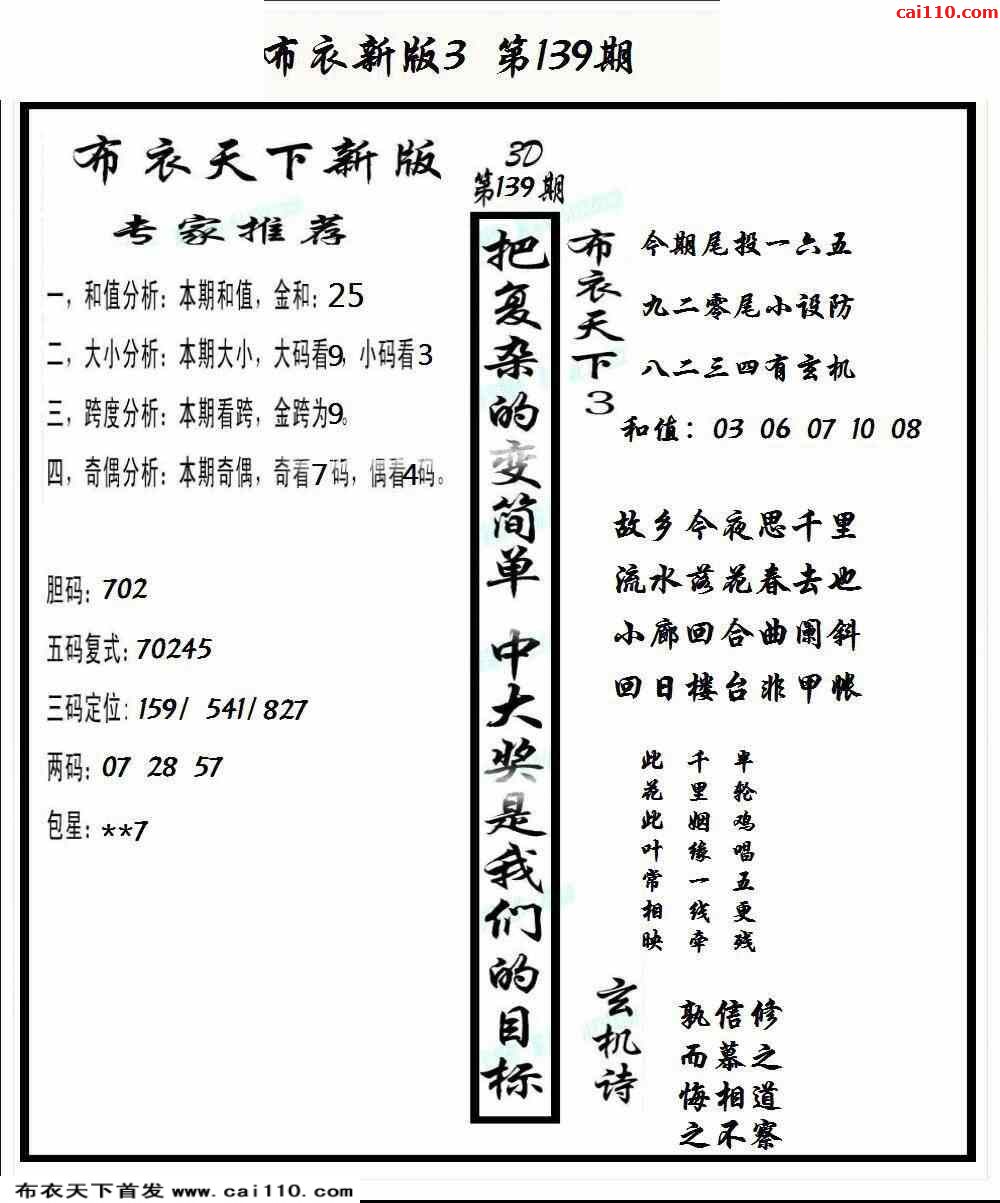 cai110.com
布衣新版3 第139期
布衣天下新版
专家推荐
一，和值分析：本期和值，金和：25
二，大小分析：本期大小，大码看9，小码看3
三，跨度分析：本期看跨，金跨为9。
四，奇偶分析：本期奇偶，奇看7码，偶看4码。
胆码：702
五码复式：70245
三码定位：159/ 541/827
两码：07 28 57
包星：**7
3D
第139期
把复杂的变简单 中大奖是我们的目标
布衣天下3
今期尾投一六五
九二零尾小设防
八二三四有玄机
和值：03 06 07 10 08
故乡今夜思千里
流水落花春去也
小廊回合曲阑斜
回日楼台非甲帐
此花此叶常相映
千里姻缘一线牵
半轮鸡唱五更残
玄机诗
孰信修
而慕之
悔相道
之不察
布衣天下首发 www.cai110.com